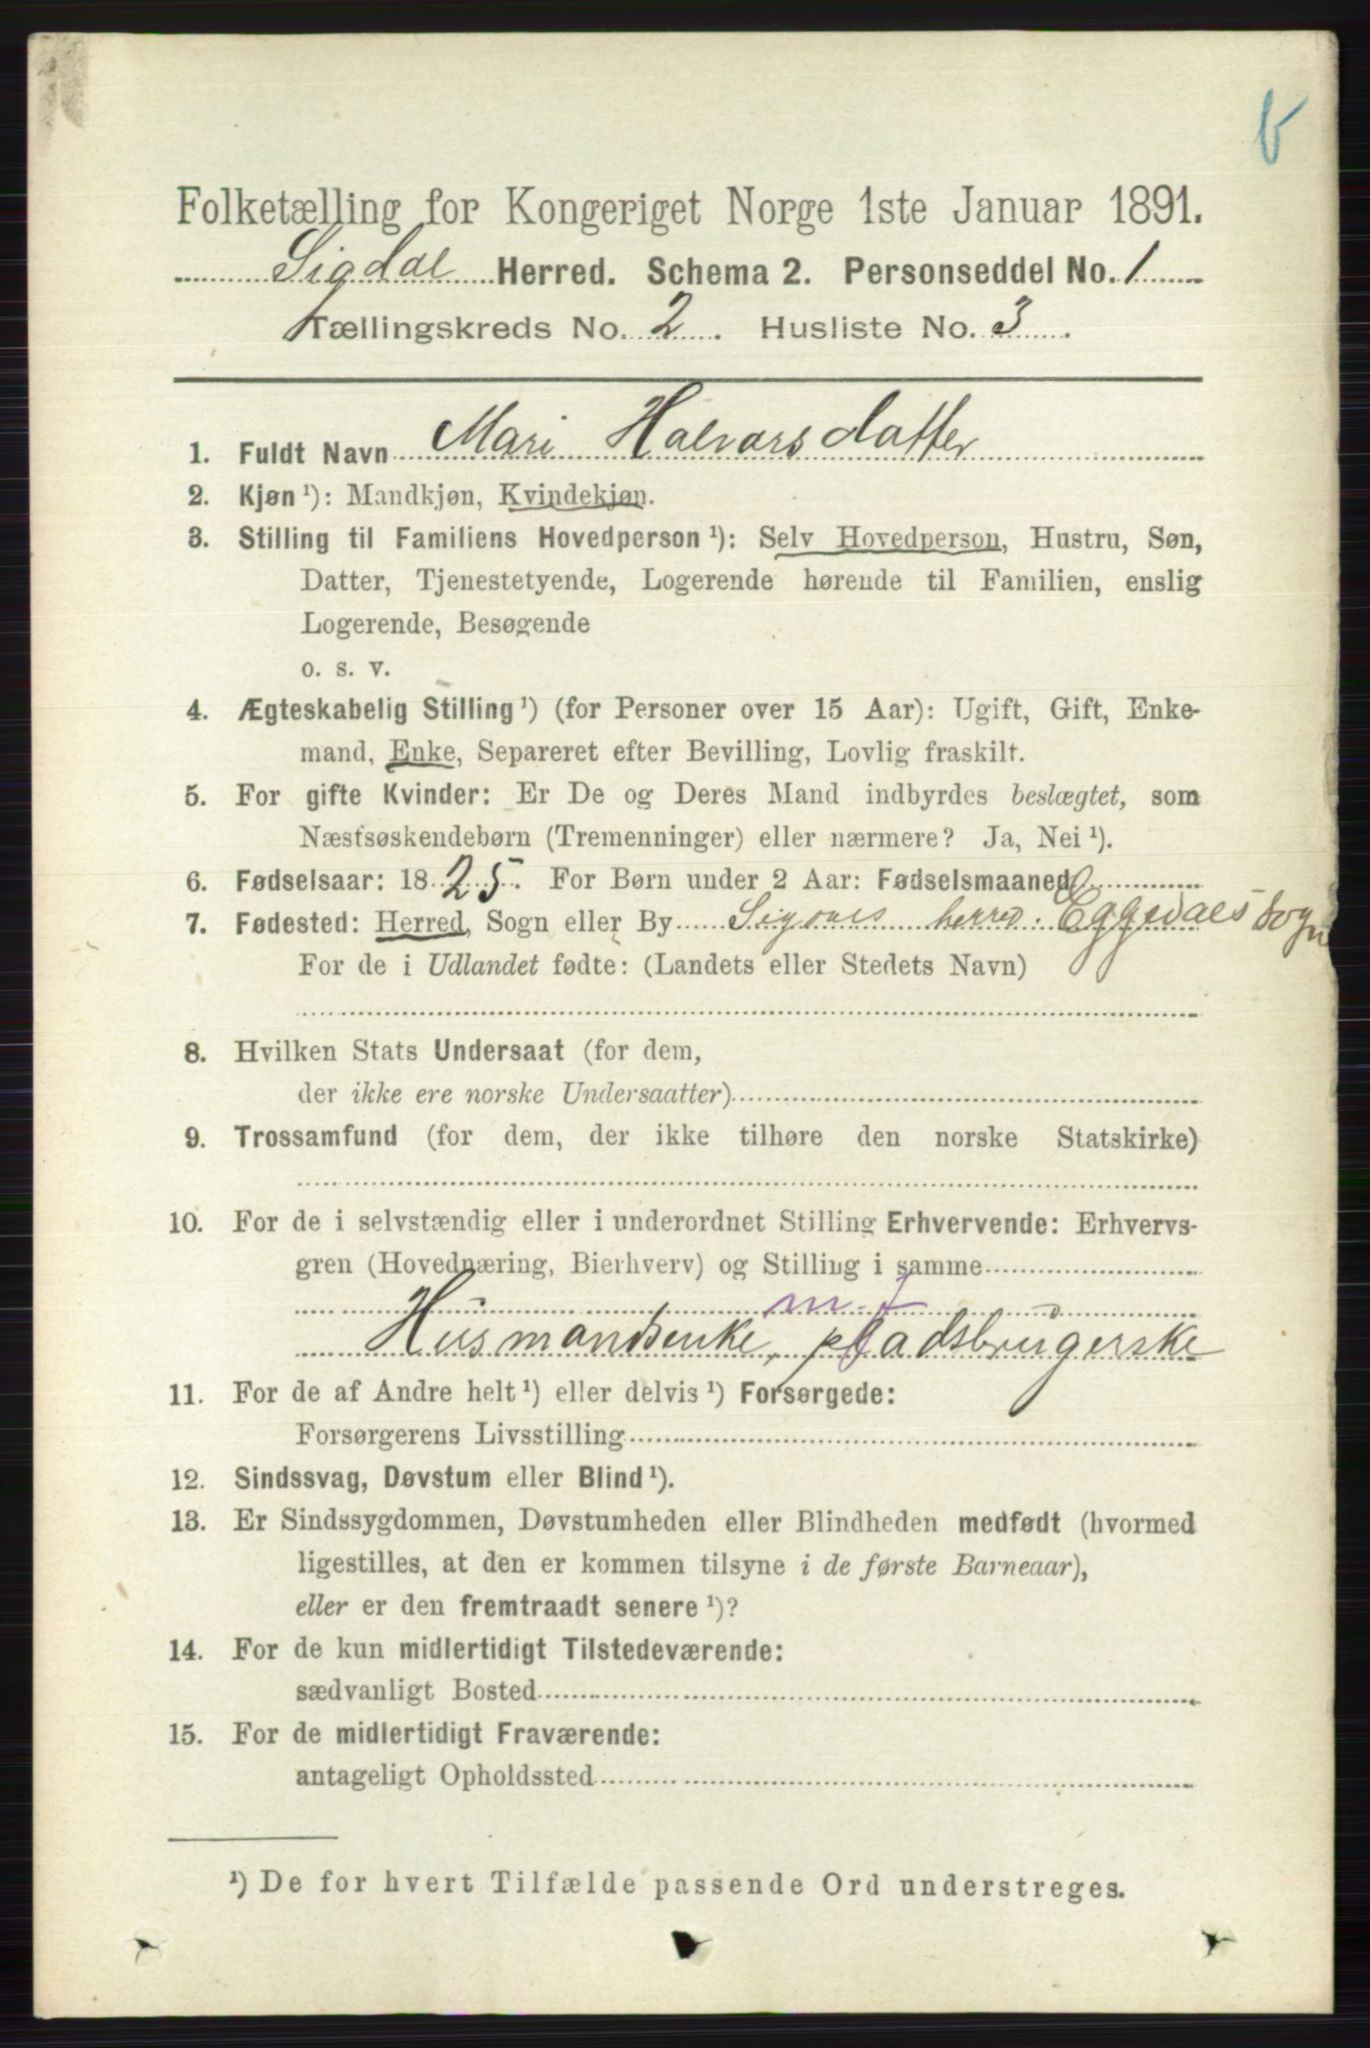 b
Folketælling for Kongeriget Norge 1ste Januar 1891.
Sigdal Herred. Schema 2. Personseddel No. 1
Tællingskreds No. 2. Husliste No. 3.
1. Fuldt Navn Mari Halvarsdatter
2. Kjøn ¹): Mandkjøn, Kvindekjøn.
3. Stilling til Familiens Hovedperson ¹): Selv Hovedperson, Hustru, Søn,
Datter, Tjenestetyende, Logerende hørende til Familien, enslig
Logerende, Besøgende
o. s. v.
4. Ægteskabelig Stilling ¹) (for Personer over 15 Aar): Ugift, Gift, Enke-
mand, Enke, Separeret efter Bevilling, Lovlig fraskilt.
5. For gifte Kvinder: Er De og Deres Mand indbyrdes beslægtet, som
Næstsøskendebørn (Tremenninger) eller nærmere? Ja, Nei ¹).
6. Fødselsaar: 1825. For Børn under 2 Aar: Fødselsmaaned
7. Fødested: Herred, Sogn eller By Sigdals herred. Eggedals Sogn
For de i Udlandet fødte: (Landets eller Stedets Navn)
8. Hvilken Stats Undersaat (for dem,
der ikke ere norske Undersaatter)
9. Trossamfund (for dem, der ikke tilhøre den norske Statskirke)
10. For de i selvstændig eller i underordnet Stilling Erhvervende: Erhvervs-
gren (Hovednæring, Bierhverv) og Stilling i samme
m. J
Husmandsenke, pladsbrugerske
11. For de af Andre helt ¹) eller delvis ¹) Forsørgede:
Forsørgerens Livsstilling
12. Sindssvag, Døvstum eller Blind ¹).
13. Er Sindssygdommen, Døvstumheden eller Blindheden medfødt (hvormed
ligestilles, at den er kommen tilsyne i de første Barneaar),
eller er den fremtraadt senere ¹)?
14. For de kun midlertidigt Tilstedeværende:
sædvanligt Bosted
15. For de midlertidigt Fraværende:
antageligt Opholdssted
¹) De for hvert Tilfælde passende Ord understreges.